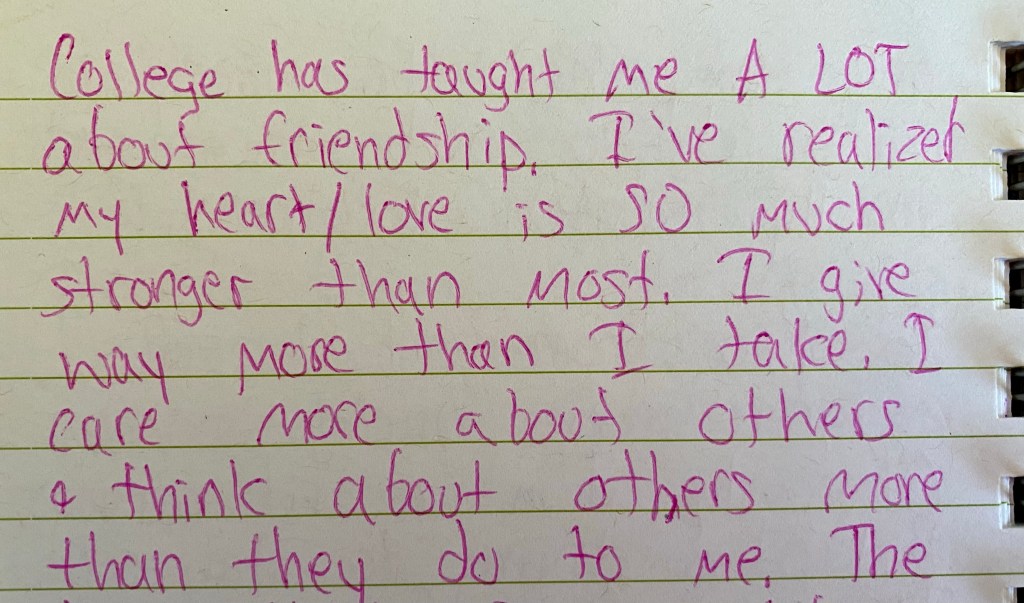 College has taught me A LOT
about friendship. I've realized
my heart/love is SO much
stronger than most. I give
way more than I take. I
care more about others
& think about others more
than they do to me. The